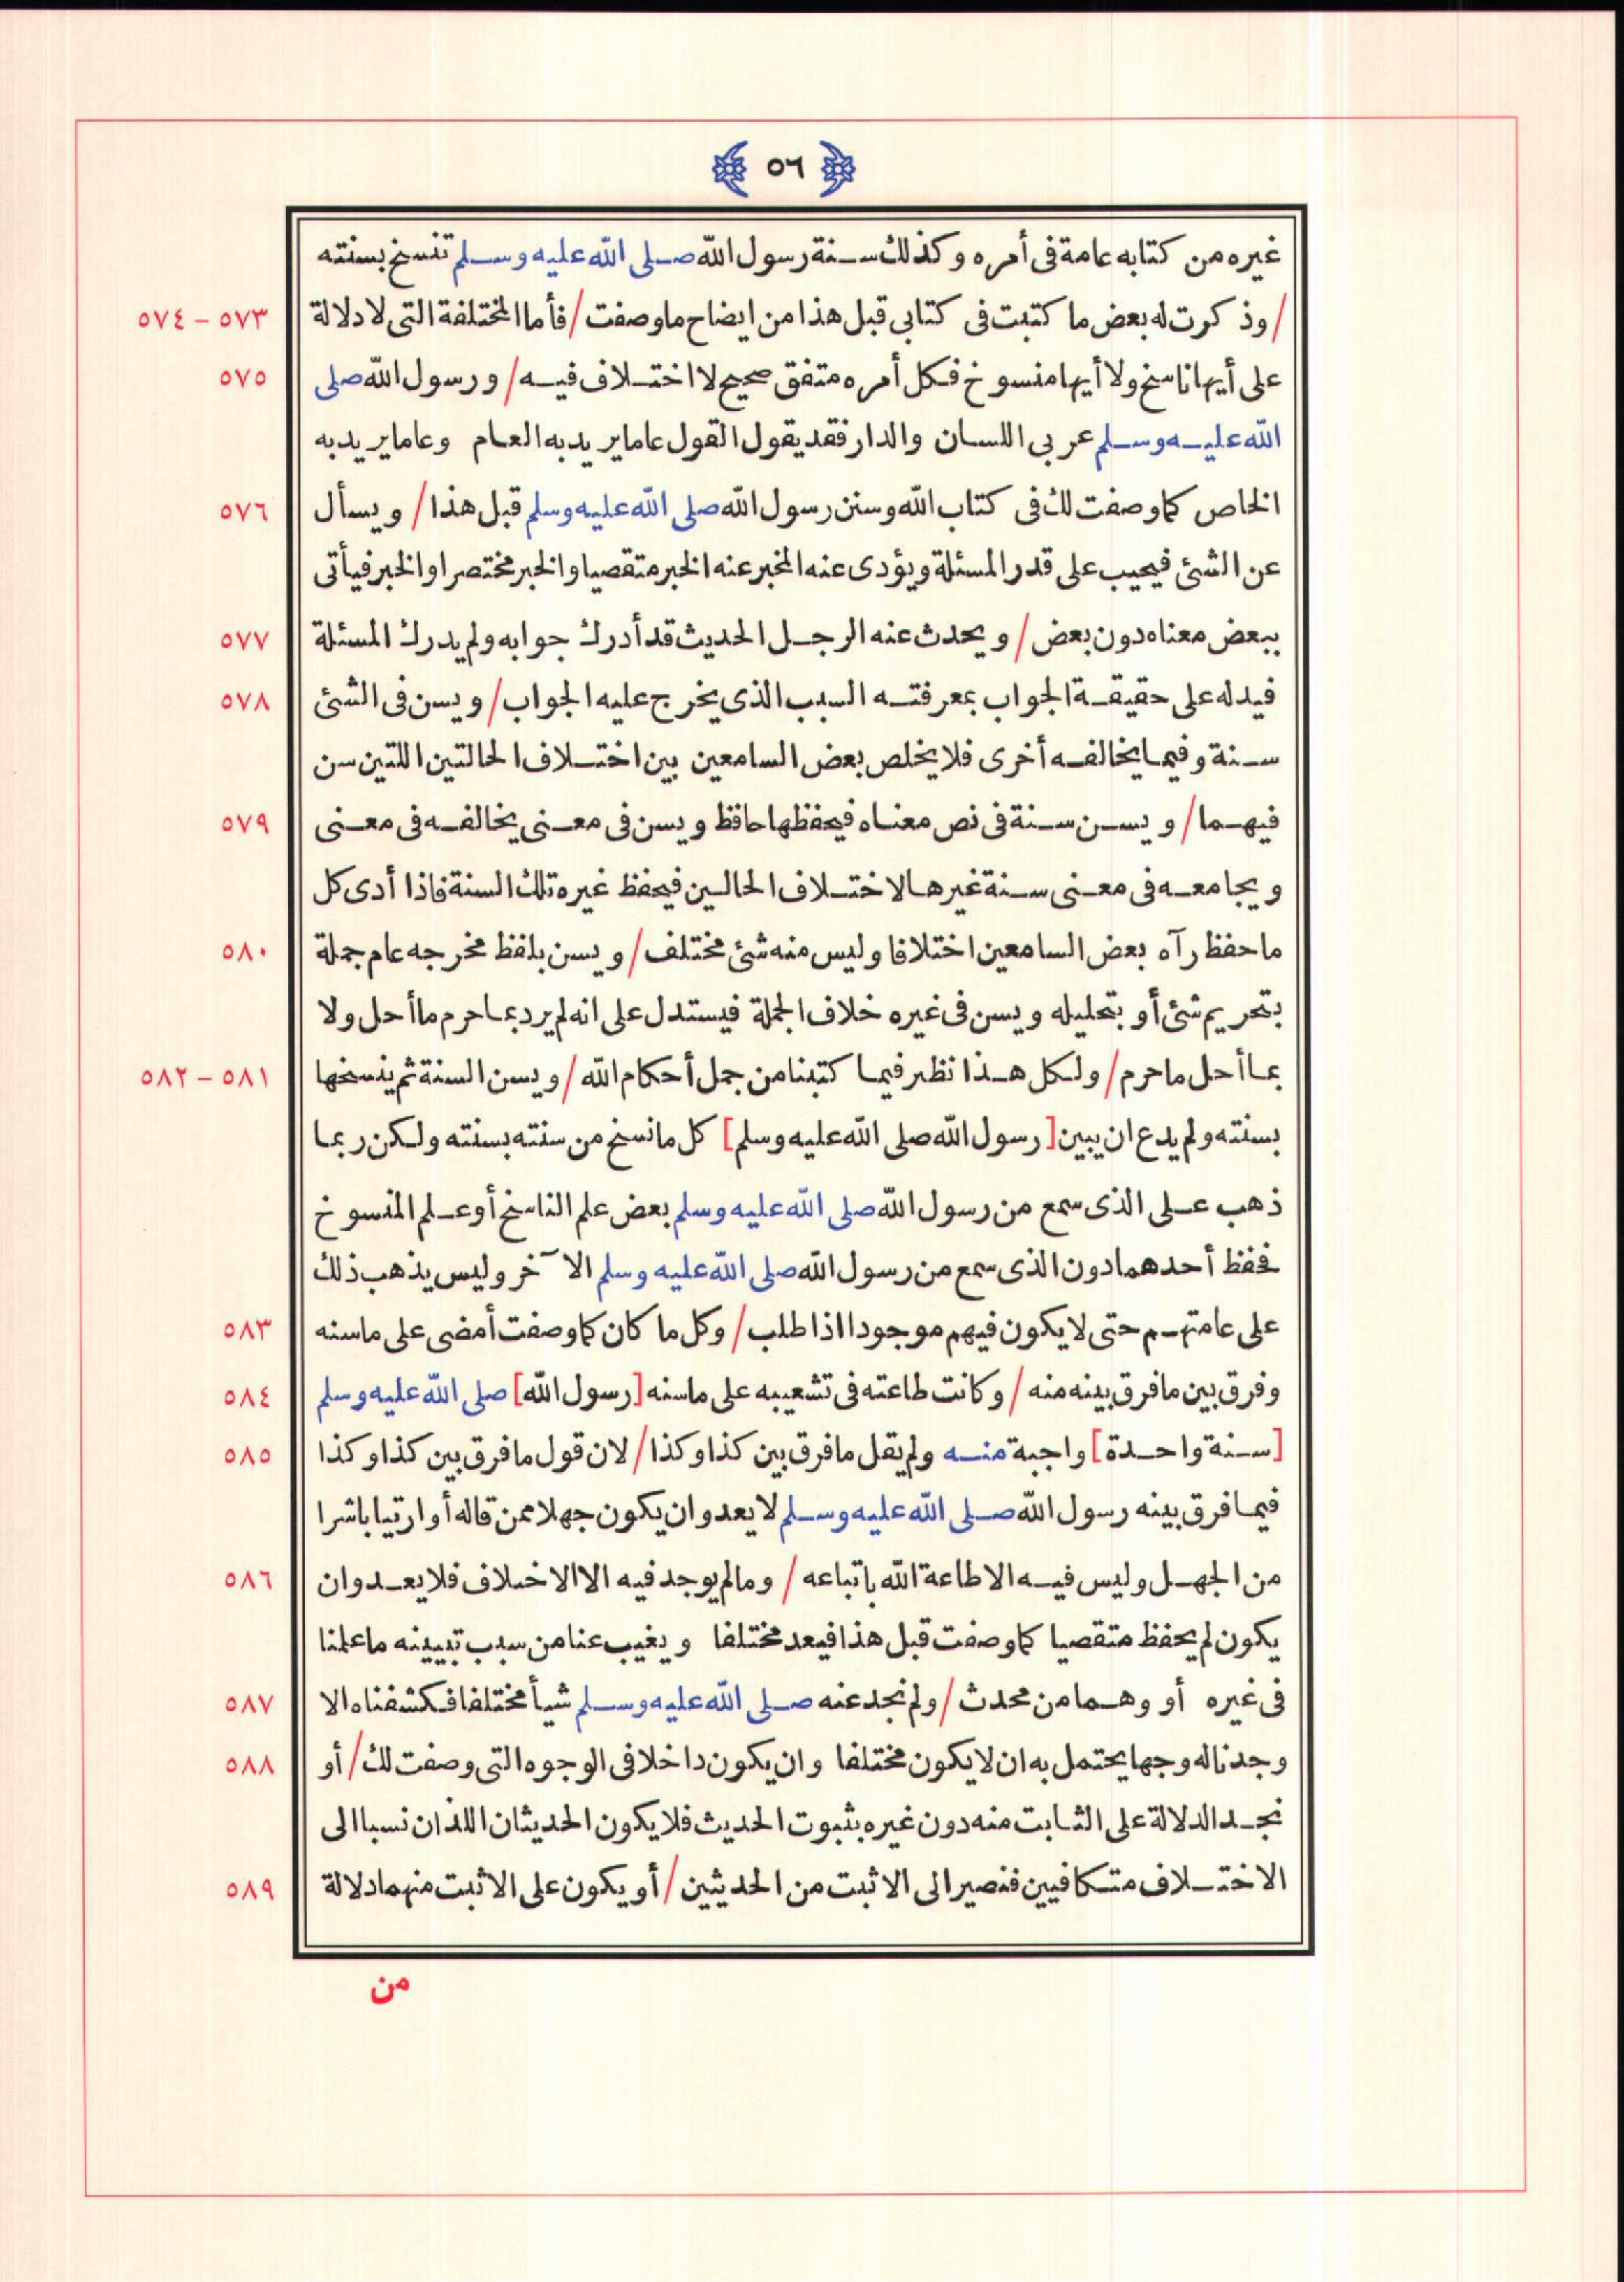 ٥٦
غيره من كتابه عامة فى أمره وكذلك سنة رسول الله صلى الله عليه وسلم تنسخ بسنته
٥٧٣ - ٥٧٤ / وذكرت له بعض ما كتبت فى كتابى قبل هذا من ايضاح ما وصفت / فأما المختلفة التى لا دلالة
٥٧٥ على أيها ناسخ ولا أيها منسوخ فكل أمره متفق صحيح لا اختلاف فيه / ورسول الله صلى
الله عليه وسلم عربى اللسان والدار فقد يقول القول عاما يريد به العام وعاما يريد به
٥٧٦ الخاص كما وصفت لك فى كتاب الله وسنن رسول الله صلى الله عليه وسلم قبل هذا / ويسأل
عن الشئ فيجيب على قدر المسئلة ويؤدى عنه المخبر عنه الخبر متقصيا والخبر مختصرا والخبر فيأتى
٥٧٧ ببعض معناه دون بعض / ويحدث عنه الرجل الحديث قد أدرك جوابه ولم يدرك المسئلة
٥٧٨ فيدله على حقيقة الجواب بمعرفته السبب الذى يخرج عليه الجواب / ويسن فى الشئ
سنة وفيما يخالفه أخرى فلا يخلص بعض السامعين بين اختلاف الحالتين اللتين سن
٥٧٩ فيهما / ويسن سنة فى نص معناه فيحفظها حافظ ويسن فى معنى يخالفه فى معنى
ويجامعه فى معنى سنة غيرها لاختلاف الحالين فيحفظ غيره تلك السنة فاذا أدى كل
٥٨٠ ما حفظ رآه بعض السامعين اختلافا وليس منه شئ مختلف / ويسن بلفظ مخرجه عام جملة
بتحريم شئ أو بتحليله ويسن فى غيره خلاف الجملة فيستدل على انه لم يرد بما حرم ما أحل ولا
٥٨١ - ٥٨٢ بما أحل ما حرم / ولكل هذا نظير فيما كتبنا من جمل أحكام الله / ويسن السنة ثم ينسخها
بسنته ولم يدع ان يبين [رسول الله صلى الله عليه وسلم] كل ما نسخ من سنته بسنته ولكن ربما
ذهب على الذى سمع من رسول الله صلى الله عليه وسلم بعض علم الناسخ أو علم المنسوخ
فحفظ أحدهما دون الذى سمع من رسول الله صلى الله عليه وسلم الآخر وليس يذهب ذلك
٥٨٣ على عامتهم حتى لا يكون فيهم موجودا اذا طلب / وكل ما كان كما وصفت أمضى على ما سنه
٥٨٤ وفرق بين ما فرق بينه منه / وكانت طاعته فى تشعيبه على ما سنه [رسول الله] صلى الله عليه وسلم
٥٨٥ [سنة واحدة] واجبة منه ولم يقل ما فرق بين كذا وكذا / لان قول ما فرق بين كذا وكذا
فيما فرق بينه رسول الله صلى الله عليه وسلم لا يعدو ان يكون جهلا ممن قاله أو ارتيابا شرا
٥٨٦ من الجهل وليس فيه الا طاعة الله باتباعه / وما لم يوجد فيه الا الاختلاف فلا يعدو ان
يكون لم يحفظ متقصيا كما وصفت قبل هذا فيعد مختلفا ويغيب عنا من سبب تبيينه ما علمنا
٥٨٧ فى غيره أو وهما من محدث / ولم نجد عنه صلى الله عليه وسلم شيأ مختلفا فكشفناه الا
٥٨٨ وجدنا له وجها يحتمل به ان لا يكون مختلفا وان يكون داخلا فى الوجوه التى وصفت لك / أو
نجد الدلالة على الثابت منه دون غيره بثبوت الحديث فلا يكون الحديثان اللذان نسبا الى
٥٨٩ الاختلاف متكافيين فنصير الى الاثبت من الحديثين / أو يكون على الاثبت منهما دلالة
من